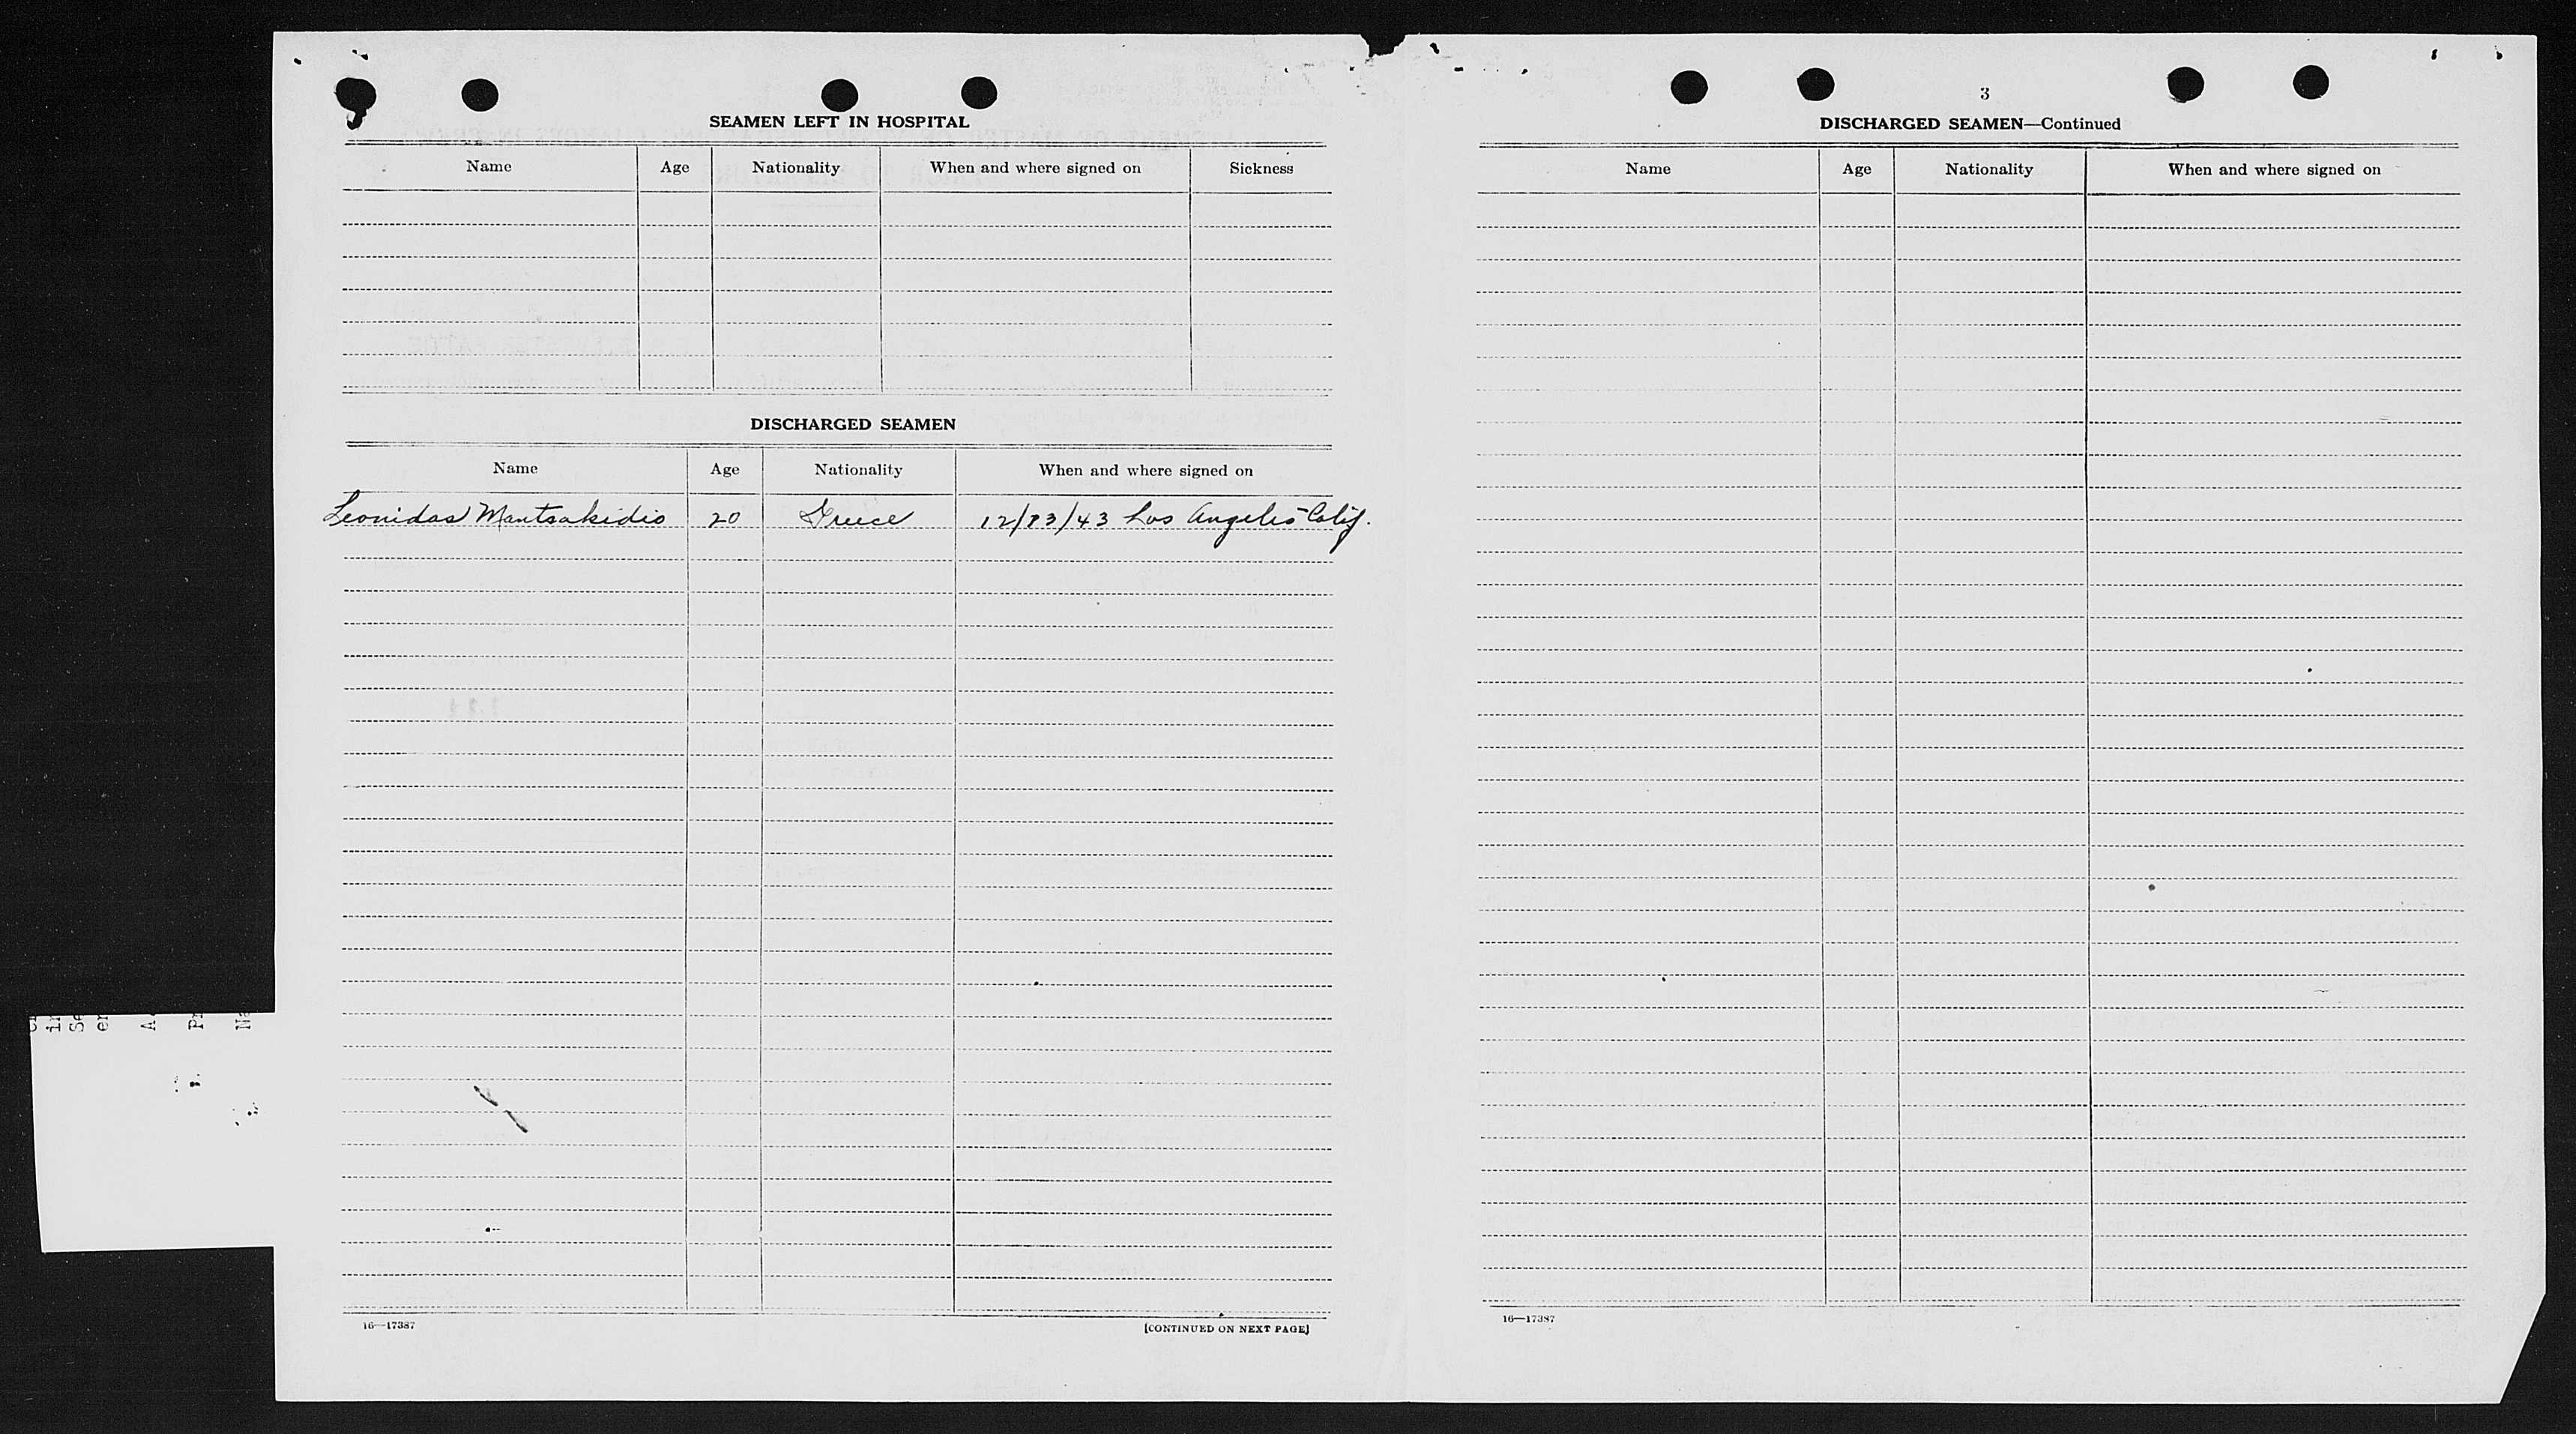 SEAMEN LEFT IN HOSPITAL
Name Age Nationality When and where signed on Sickness
DISCHARGED SEAMEN
Name Age Nationality When and where signed on
Leonidas Mantsakidio 20 Greece 12/23/43 Los Angeles Calif.
16—17387
[CONTINUED ON NEXT PAGE]
3
DISCHARGED SEAMEN—Continued
Name Age Nationality When and where signed on
16—17387
in
Se
er
A
Pr
Na